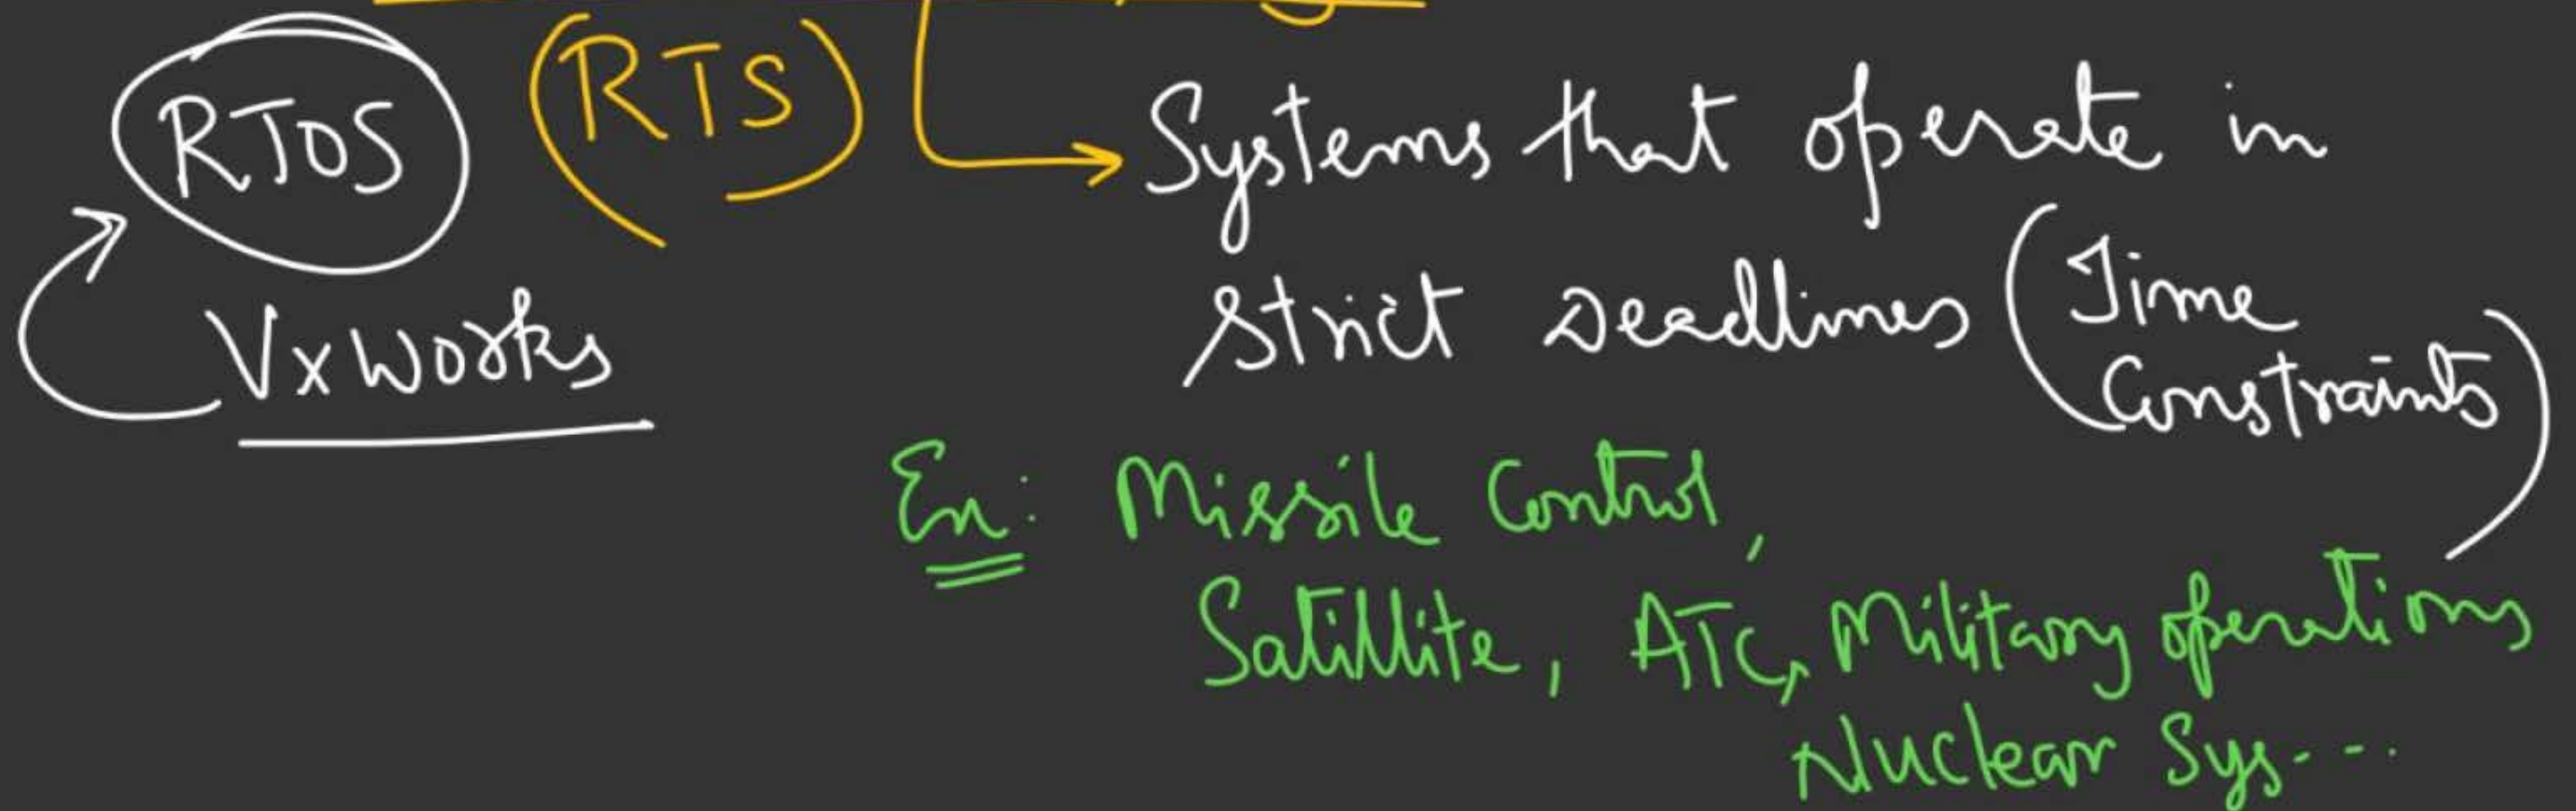 RTOS (RTS) Systems that operate in
Strict Deadlines (Time
Constraints)
VxWorks
Ex: Missile Control,
Satillite, ATC, Military operations
Nuclear Sys....